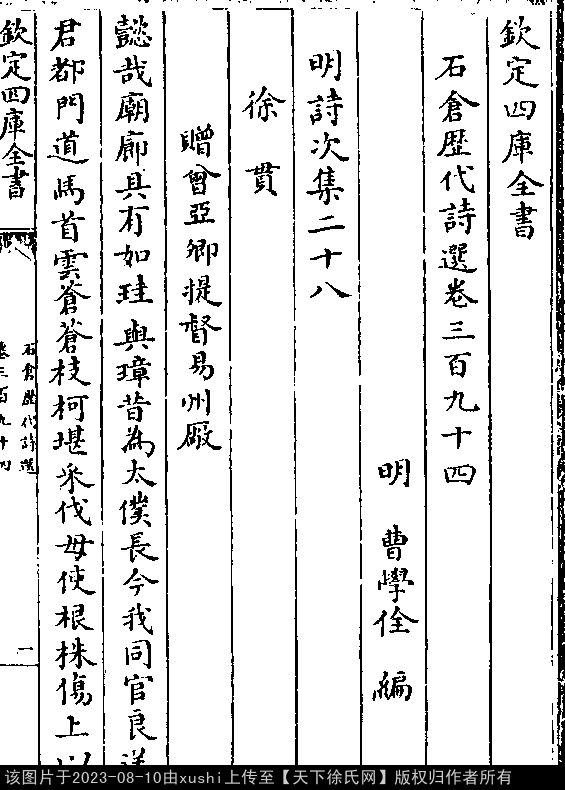 欽定四庫全書
石倉歴代詩選卷三百九十四
明 曹學佺 編
明詩次集二十八
徐貫
贈曾亞卿提督易州厰
懿哉廟廊具有如珪與璋昔為太僕長今我同官良送
君都門道馬首雲蒼蒼枝柯堪采伐毋使根株傷上以
欽定四庫全書
石倉歴代詩選
卷三百九十四
一
该图片于2023-08-10由xushi上传至【天下徐氏网】版权归作者所有